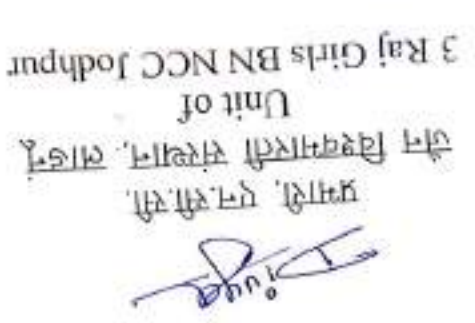 प्रभारी, एन.सी.सी.
जैन विश्वभारती संस्थान, लाडनूं
Unit of
3 Raj Girls BN NCC Jodhpur